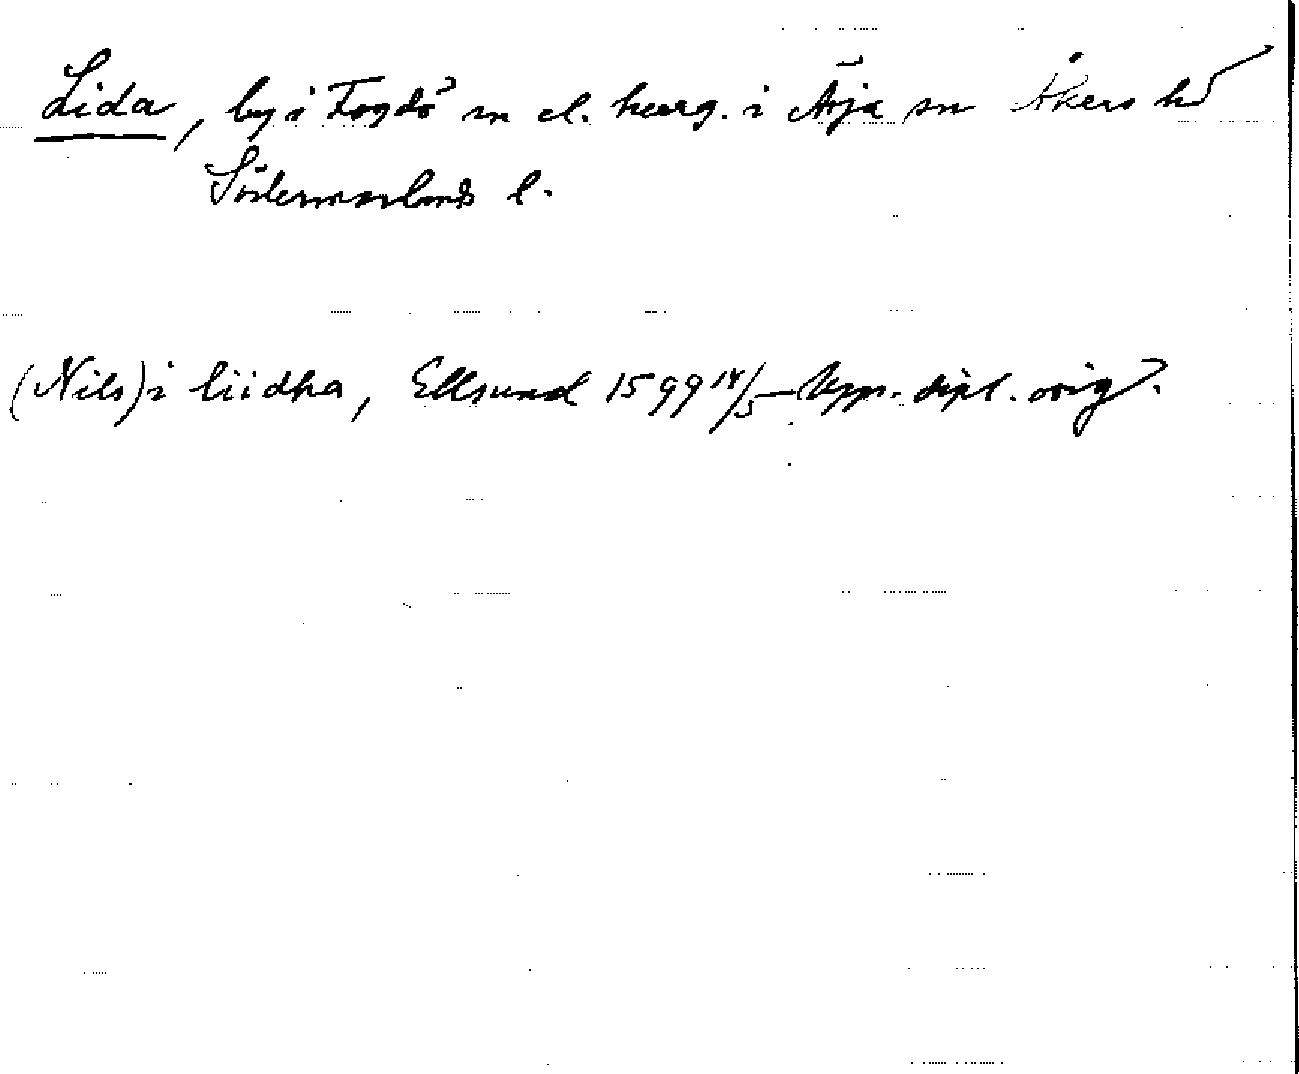 Lida, by i Fogdö sn el. herrg. i Ärja sn Åkers hd
Södermanlands l.
(Nils) i liidha, Ellsund 1599 14/5 Upps. dipl. orig.